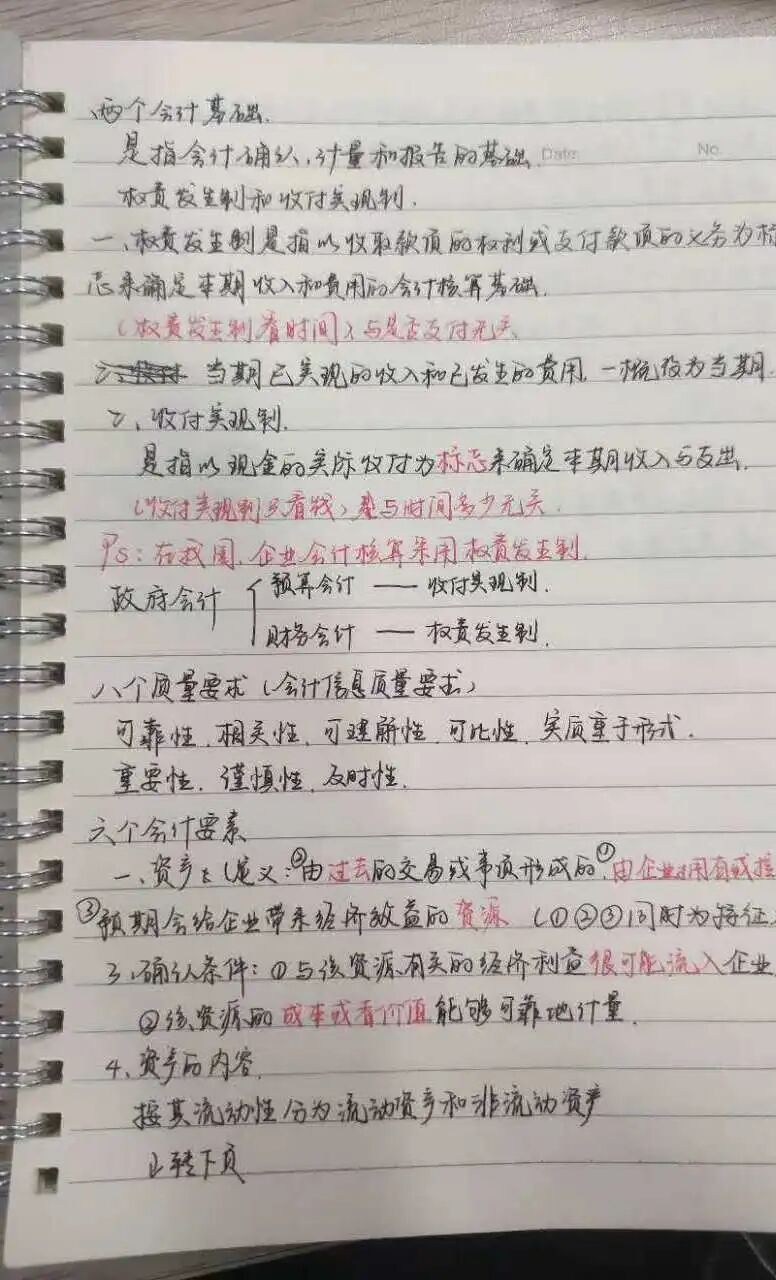 两个会计基础.
是指会计确认、计量和报告的基础.
Date. No.
权责发生制和收付实现制.
一、权责发生制是指以收取款项的权利或支付款项的义务为标
志来确定本期收入和费用的会计核算基础.
(权责发生制看时间)与是否支付无关
当期已实现的收入和已发生的费用,一概设为当期.
2、收付实现制.
是指以现金的实际收付为标志来确定本期收入与支出.
(收付实现制只看钱)与时间多少无关.
Ps:在我国,企业会计核算采用权责发生制.
政府会计
预算会计 —— 收付实现制.
财务会计 —— 权责发生制.
八个质量要求(会计信息质量要求)
可靠性.相关性.可理解性.可比性.实质重于形式.
重要性.谨慎性.及时性.
六个会计要素
一、资产(定义:②由过去的交易或事项形成的,①由企业拥有或控
③预期会给企业带来经济效益的资源(①②③同时为特征.
3、确认条件:①与该资源有关的经济利益很可能流入企业
②该资源的成本或者价值能够可靠地计量.
4、资产的内容.
按其流动性分为流动资产和非流动资产
转下页